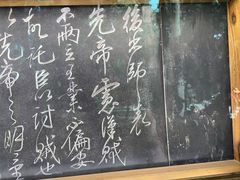 後出師表
先帝慮漢賊
不兩立王業不偏安
故託臣以討賊也
以先帝之明量